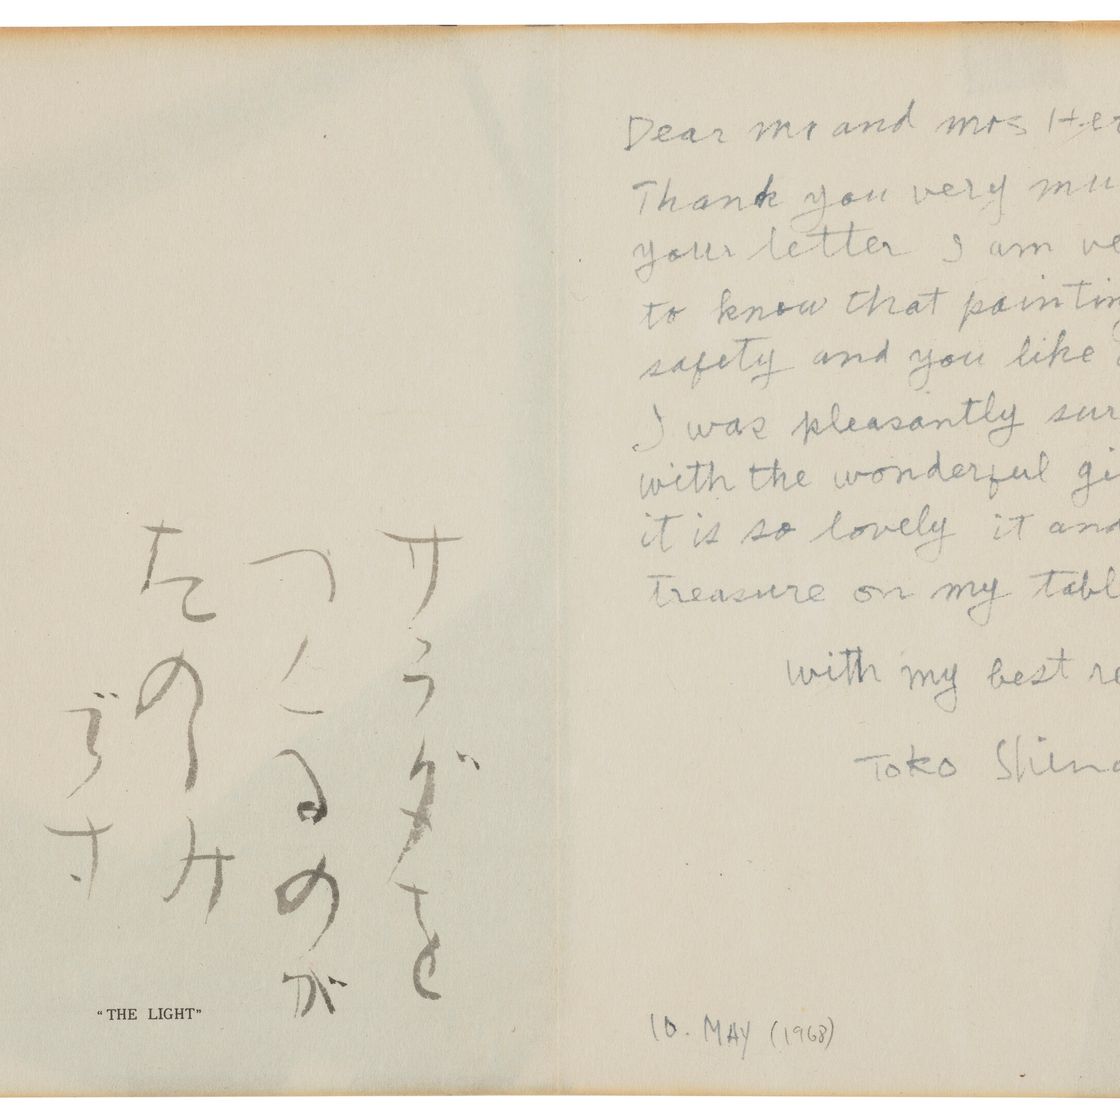 サラダを
つくるのが
たのしみ
です
“THE LIGHT”
Dear mr and mrs He
Thank you very mu
your letter I am ve
to know that paintin
safety and you like
I was pleasantly sur
with the wonderful gi
it is so lovely it and
treasure on my tabl
with my best re
Toko Shino
10. MAY (1968)